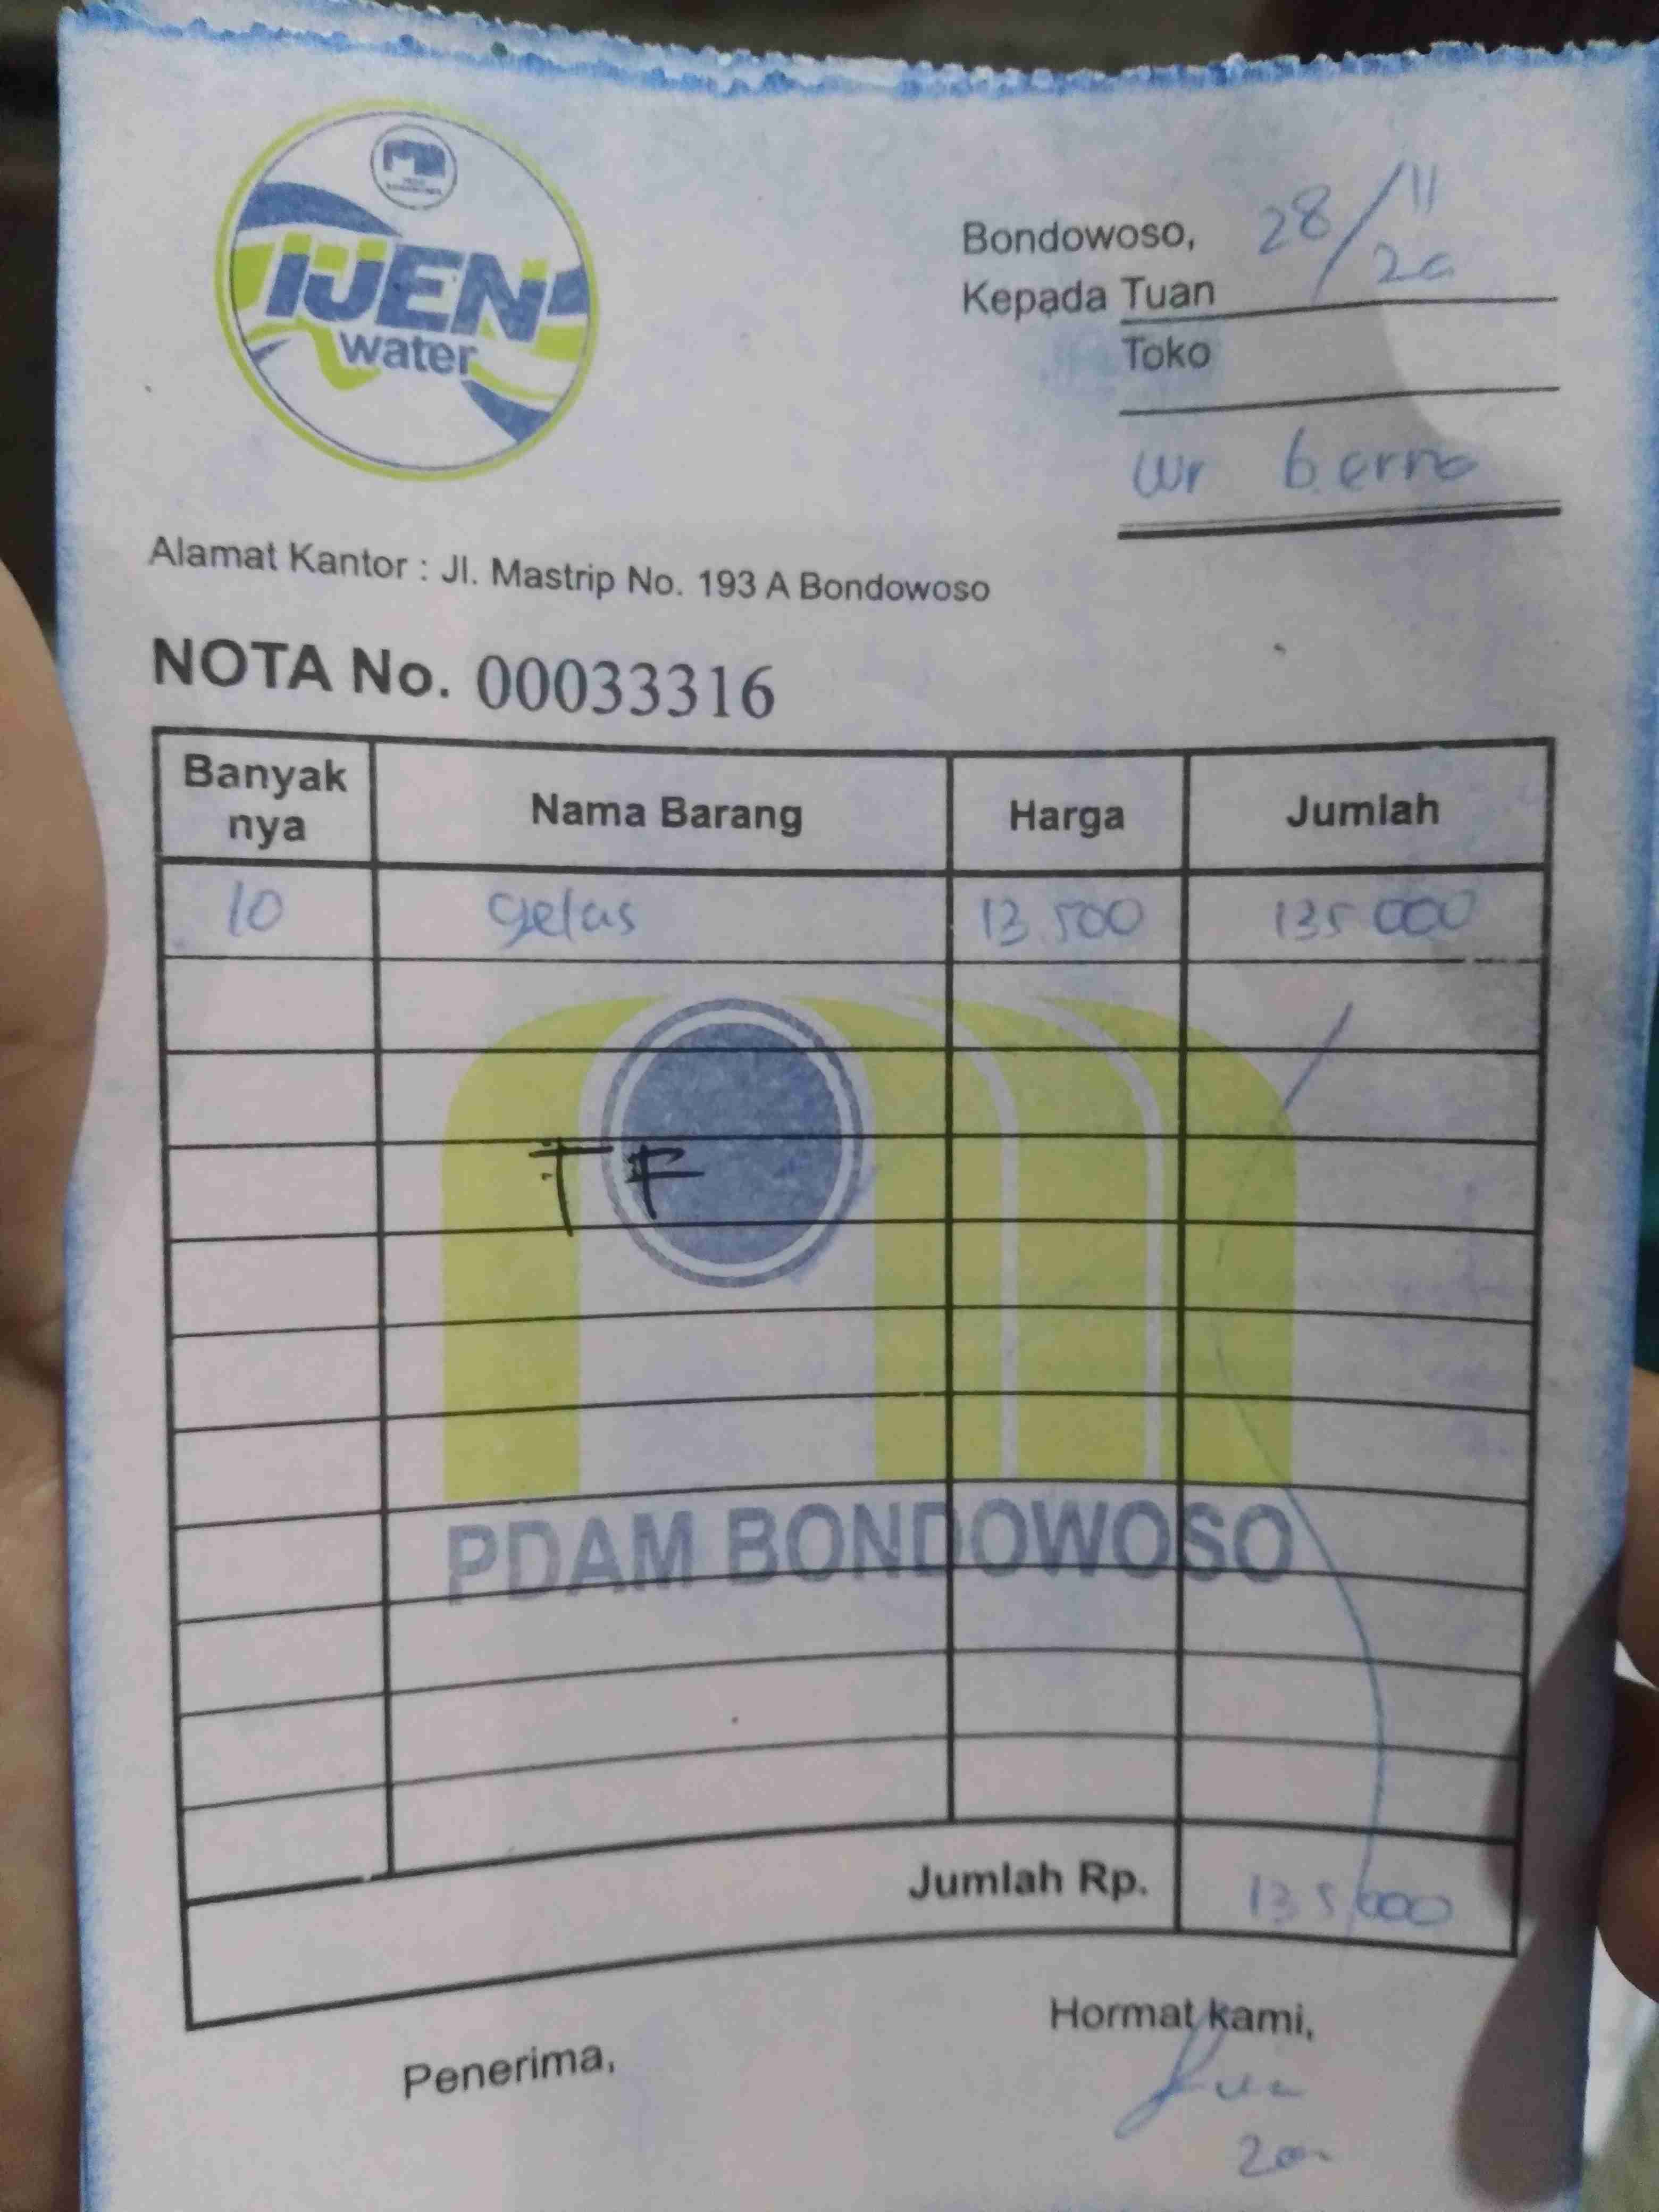 IJEN
water
Bondowoso, 28/11
Kepada Tuan
Toko
wr b.erna
Alamat Kantor : Jl. Mastrip No. 193 A Bondowoso
NOTA No. 00033316
Banyak nya Nama Barang Harga Jumlah
10 gelas 13.500 135.000
TF
PDAM BONDOWOSO
Jumlah Rp. 135.000
Penerima, Hormat kami,